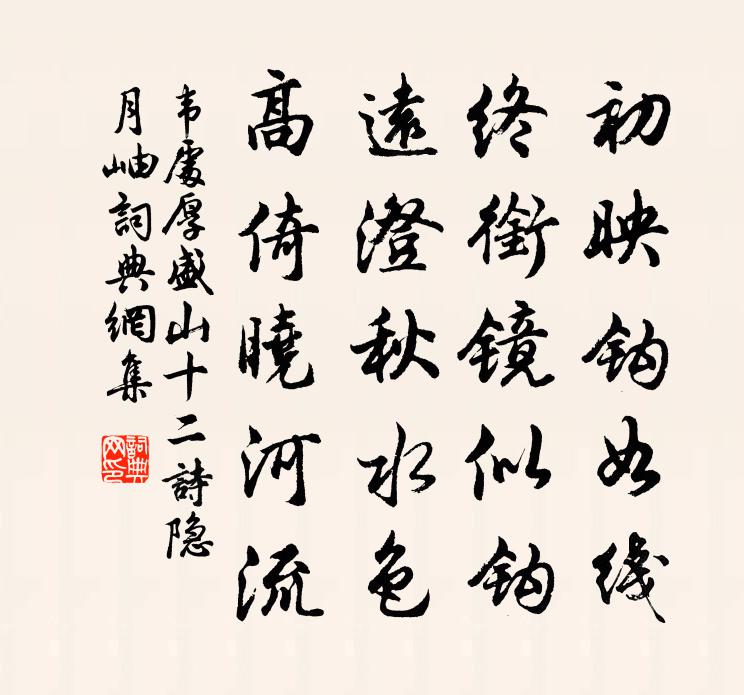 初映钩如线
终衔镜似钩
遠澄秋水色
高倚曉河流
韦處厚盛山十二詩隐
月岫詞典網集
詞典网印